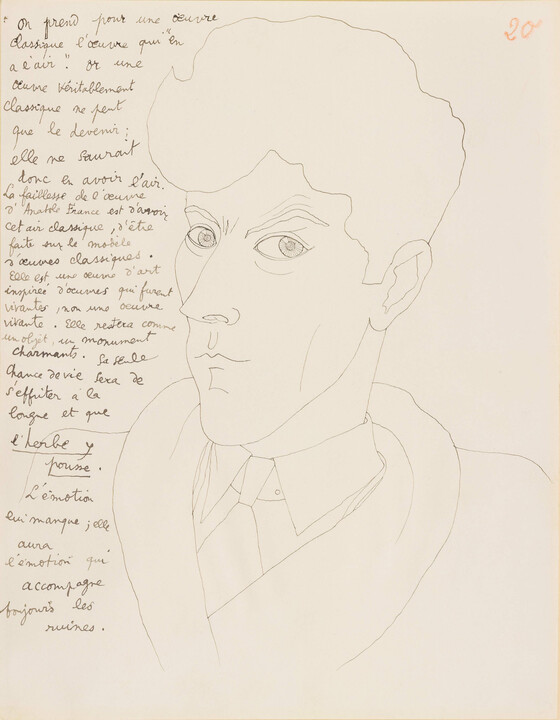 On prend pour une œuvre
classique l'œuvre qui "en
a l'air". Or une
œuvre véritablement
classique ne peut
que le devenir;
elle ne saurait
donc en avoir l'air.
La faiblesse de l'œuvre
d'Anatole France est d'avoir
cet air classique, d'être
faite sur le modèle
d'œuvres classiques.
Elle est une œuvre d'art
inspirée d'œuvres qui furent
vivantes, non une œuvre
vivante. Elle restera comme
un objet, un monument
charmants. Sa seule
chance de vie sera de
s'effriter à la
longue et que
l'herbe y
pousse.
L'émotion
lui manque; elle
aura
l'émotion qui
accompagne
toujours les
ruines.
20